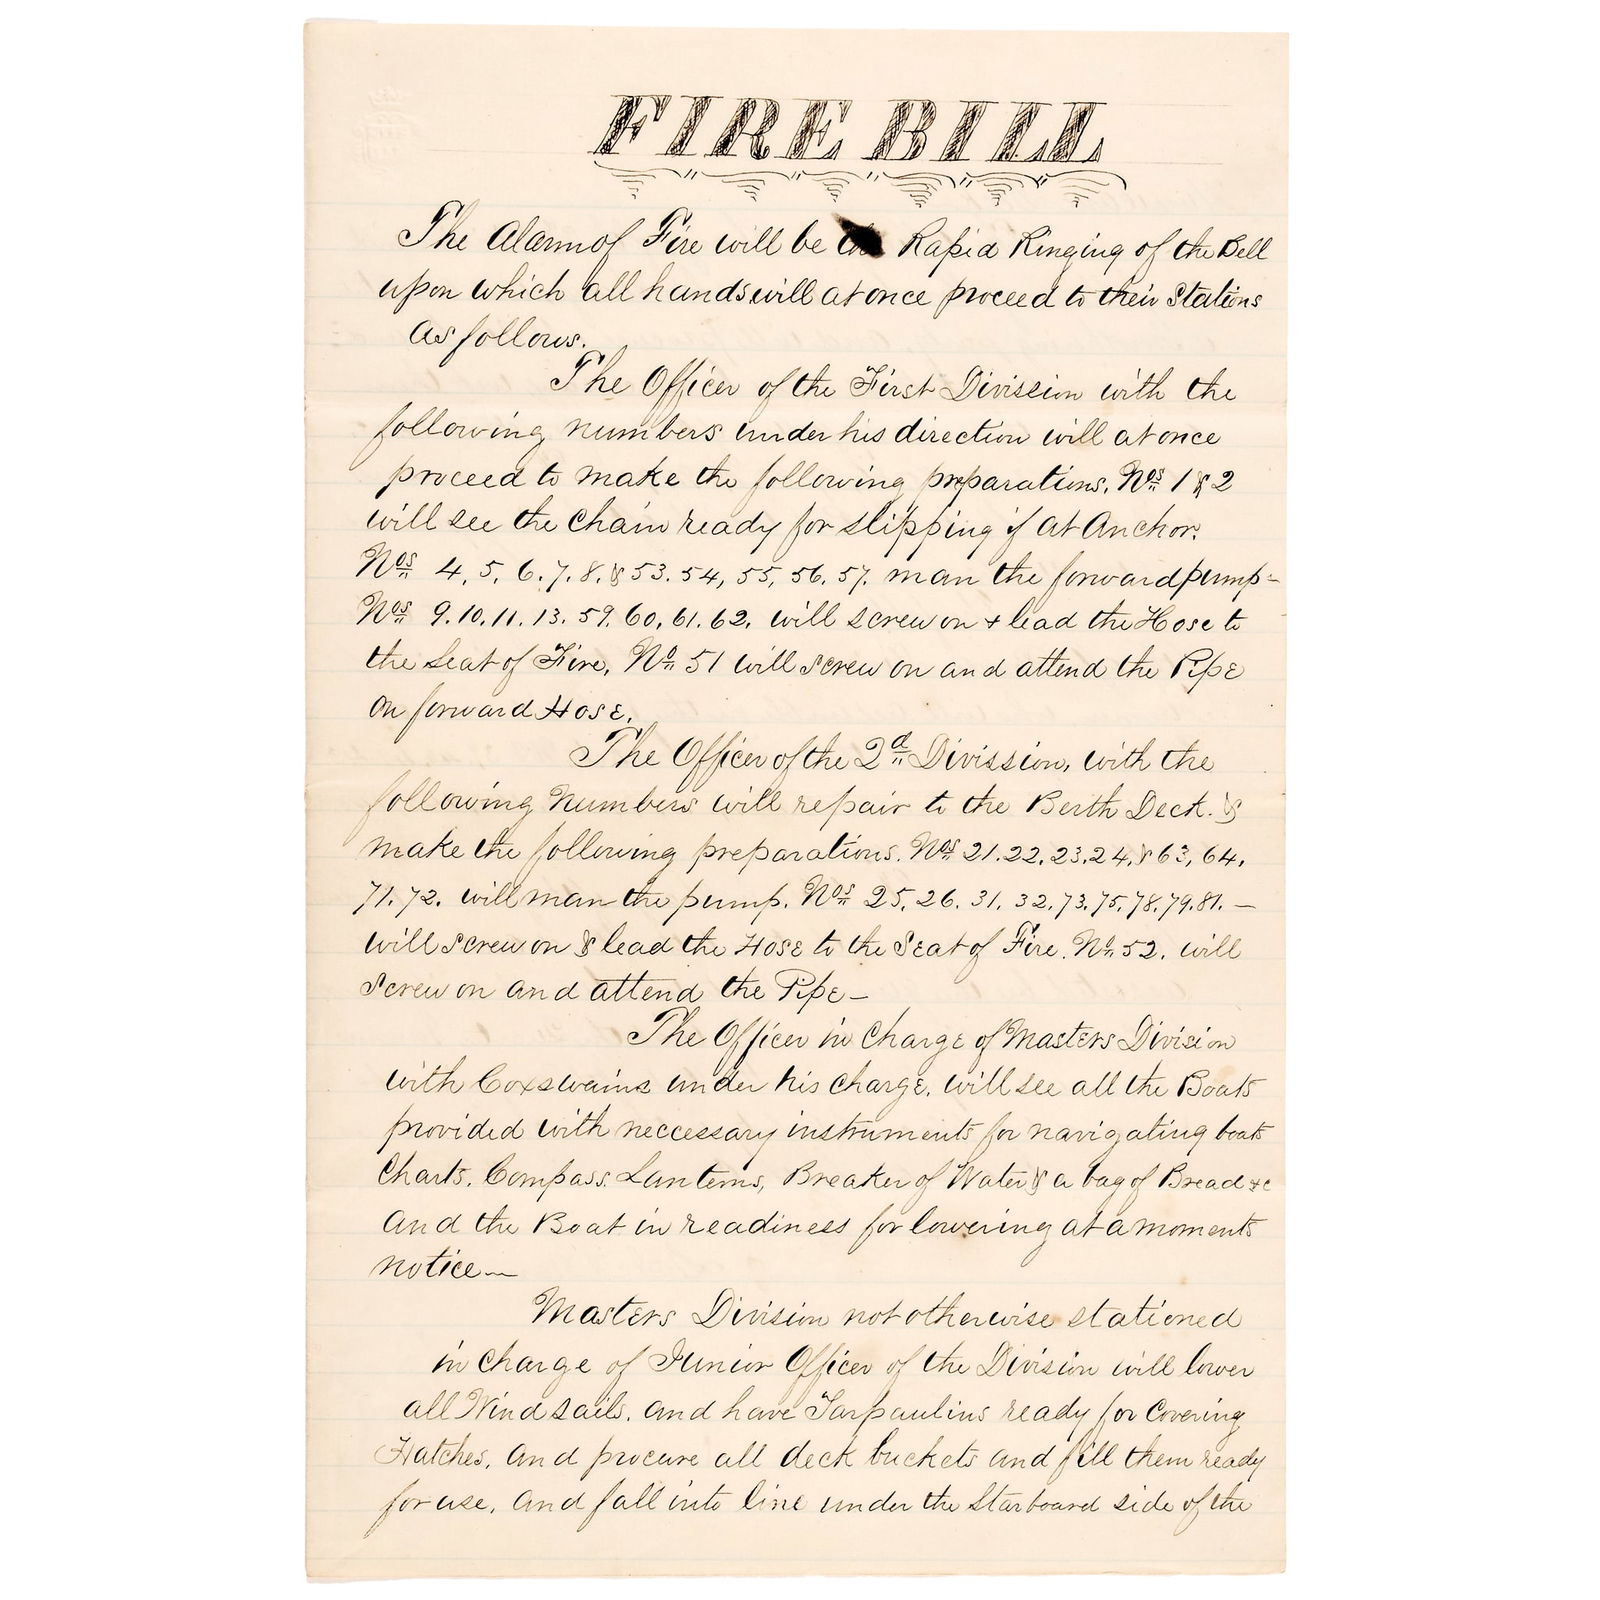 FIRE BILL
The Alarm of Fire will be the Rapid Ringing of the Bell
upon which all hands will at once proceed to their Stations
as follows.
The Officer of the First Division with the
following numbers under his direction will at once
proceed to make the following preparations. Nos 1 & 2
will see the Chain ready for slipping if at Anchor.
Nos 4, 5, 6. 7. 8. & 53. 54, 55, 56. 57. man the forward pump-
Nos 9. 10. 11. 13. 59. 60, 61. 62. will screw on + lead the Hose to
the Seat of Fire, No 51 will screw on and attend the Pipe
on forward Hose.
The Officer of the 2d Division, with the
following Numbers will repair to the Berth Deck. &
make the following preparations. Nos 21. 22. 23. 24. & 63, 64.
71. 72. will man the pump. Nos 25. 26. 31. 32. 73. 75. 78. 79. 81. —
will screw on & lead the Hose to the Seat of Fire. No 52. will
screw on and attend the Pipe —
The Officer in Charge of Masters Division
with Coxswains under his charge, will see all the Boats
provided with neccessary instruments for navigating boats
Charts. Compass. Lanterns, Breaker of Water & a bag of Bread &c
and the Boat in readiness for lowering at a moments
notice —
Masters Division not otherwise stationed
in charge of Junior Officer of the Division will lower
all Wind sails. and have Tarpaulins ready for Covering
Hatches. and procure all deck buckets and fill them ready
for use, and fall into line under the Starboard side of the